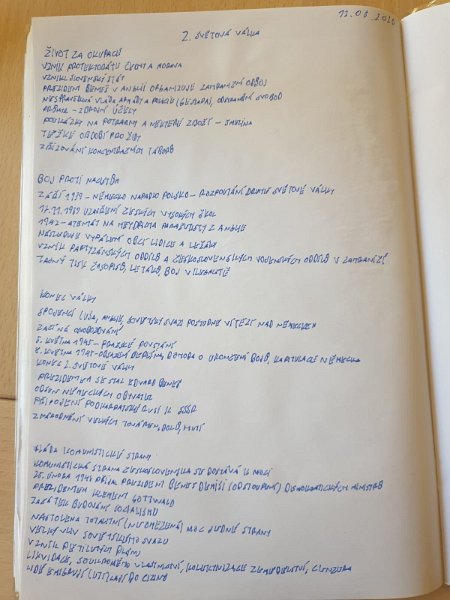 11.06.2020
2. SVĚTOVÁ VÁLKA
ŽIVOT ZA OKUPACE
VZNIK PROTEKTORÁTU ČECHY A MORAVA
VZNIKL SLOVENSKÝ STÁT
PREZIDENT BENEŠ V ANGLII ORGANIZUJE ZAHRANIČNÍ ODBOJ
NESPRAVEDLIVÁ VLÁDA ARMÁDY A POLICIE (GESTAPO), SVOBOD
ÚČELY
POUKÁZKY NA POTRAVINY A NĚKTERÉ ZBOŽÍ -
TĚŽKÉ OBDOBÍ PRO ŽIDY
ZŘIZOVÁNÍ KONCENTRAČNÍCH TÁBORŮ
BOJ PROTI NACISTŮM
ZÁŘÍ 1939 - NĚMECKO NAPADLO POLSKO - ROZPOUTÁNÍ DRUHÉ SVĚTOVÉ VÁLKY
17.11.1939 UZAVŘENÍ ČESKÝCH VYSOKÝCH ŠKOL
1942 - ATENTÁT NA HEYDRICHA PARAŠUTISTY Z ANGLIE
NÁSLEDUJE VYPÁLENÍ OBCÍ LIDICE A LEŽÁKY
VZNIK PARTYZÁNSKÝCH ODDÍLŮ A ČESKOSLOVENSKÝCH VOJENSKÝCH ODDÍLŮ V ZAHRANIČÍ
TAJNÝ TISK ČASOPISŮ, LETÁKŮ, BOJ V ILEGALITĚ
KONEC VÁLKY
SPOJENCI (USA, ANGLIE, SOVĚTSKÝ SVAZ POSTUPNĚ VÍTĚZÍ NAD NĚMECKEM
ZAČÍNÁ OSVOBOZOVÁNÍ
5. KVĚTNA 1945 - PRAŽSKÉ POVSTÁNÍ
8. KVĚTNA 1945 - DOHODA O UKONČENÍ BOJŮ, KAPITULACE NĚMECKA
KONEC 2. SVĚTOVÉ VÁLKY
PREZIDENTEM SE STAL EDVARD BENEŠ
ODSUN NĚMECKÝCH OBYVATEL
PŘIPOJENÍ PODKARPATSKÉ RUSI K SSSR
ZNÁRODNĚNÍ VELKÝCH TOVÁREN, DOLŮ, HUTÍ
VLÁDA KOMUNISTICKÉ STRANY
KOMUNISTICKÁ STRANA ČESKOSLOVENSKA SE DOSTÁVÁ K MOCI
25. ÚNORA 1948 PŘIJAL PREZIDENT BENEŠ DEMISI (ODSTOUPENÍ) DEMOKRATICKÝCH MINISTRŮ
PREZIDENTEM KLEMENT GOTTWALD
ZAČÁTEK BUDOVÁNÍ SOCIALISMU
NASTOLENA TOTALITNÍ (NEOMEZENÁ) MOC JEDNÉ STRANY
VELKÝ VLIV SOVĚTSKÉHO SVAZU
VZNIK PĚTILETÝCH PLÁNŮ
LIKVIDACE SOUKROMÉHO VLASTNICTVÍ, KOLEKTIVIZACE ZEMĚDĚLSTVÍ, CENZURA
LIDÉ EMIGRUJÍ (UTÍKAJÍ) DO CIZINY